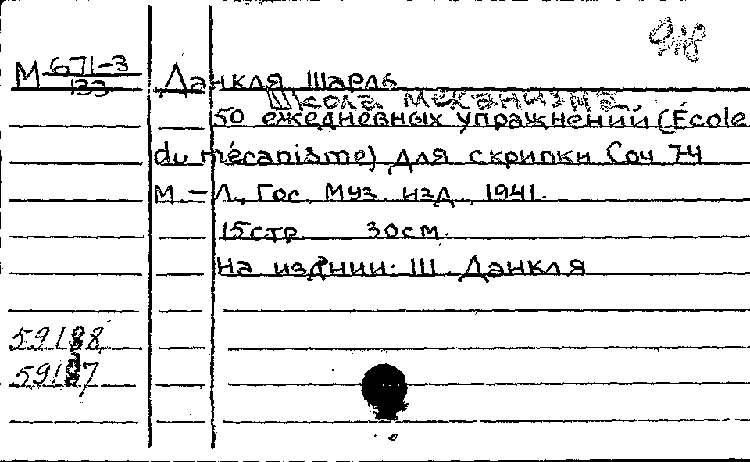 М 671-3
133
Данкля Шарль
Школа механизма.
50 ежедневных упражнений (École
du mécanisme) для скрипки Соч 74
М.–Л., Гос. Муз. изд., 1941.
15стр 30см.
На изднии: Ш. Данкля
59188